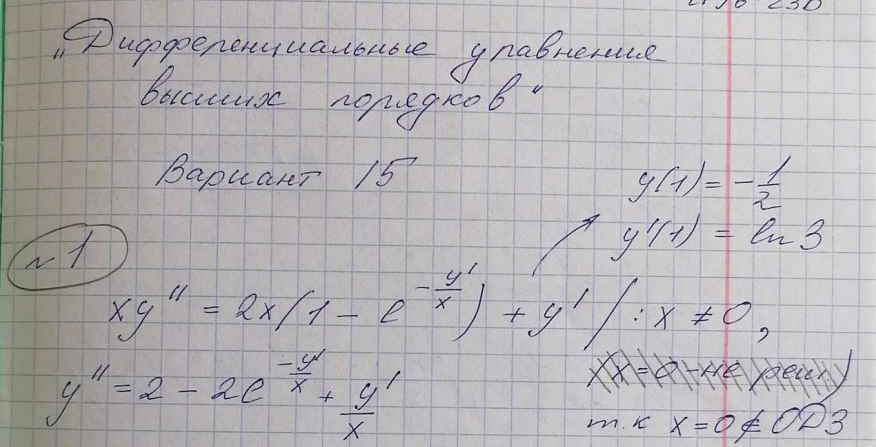 „Дифференциальные уравнения
высших порядков"
Вариант 15
y(1) = -1/2
y'(1) = ln 3
№1
xy'' = 2x(1 - e^(-y'/x)) + y' | : x ≠ 0,
(x = 0 - не реш)
y'' = 2 - 2e^(-y'/x) + y'/x
т.к x = 0 ∉ ОДЗ